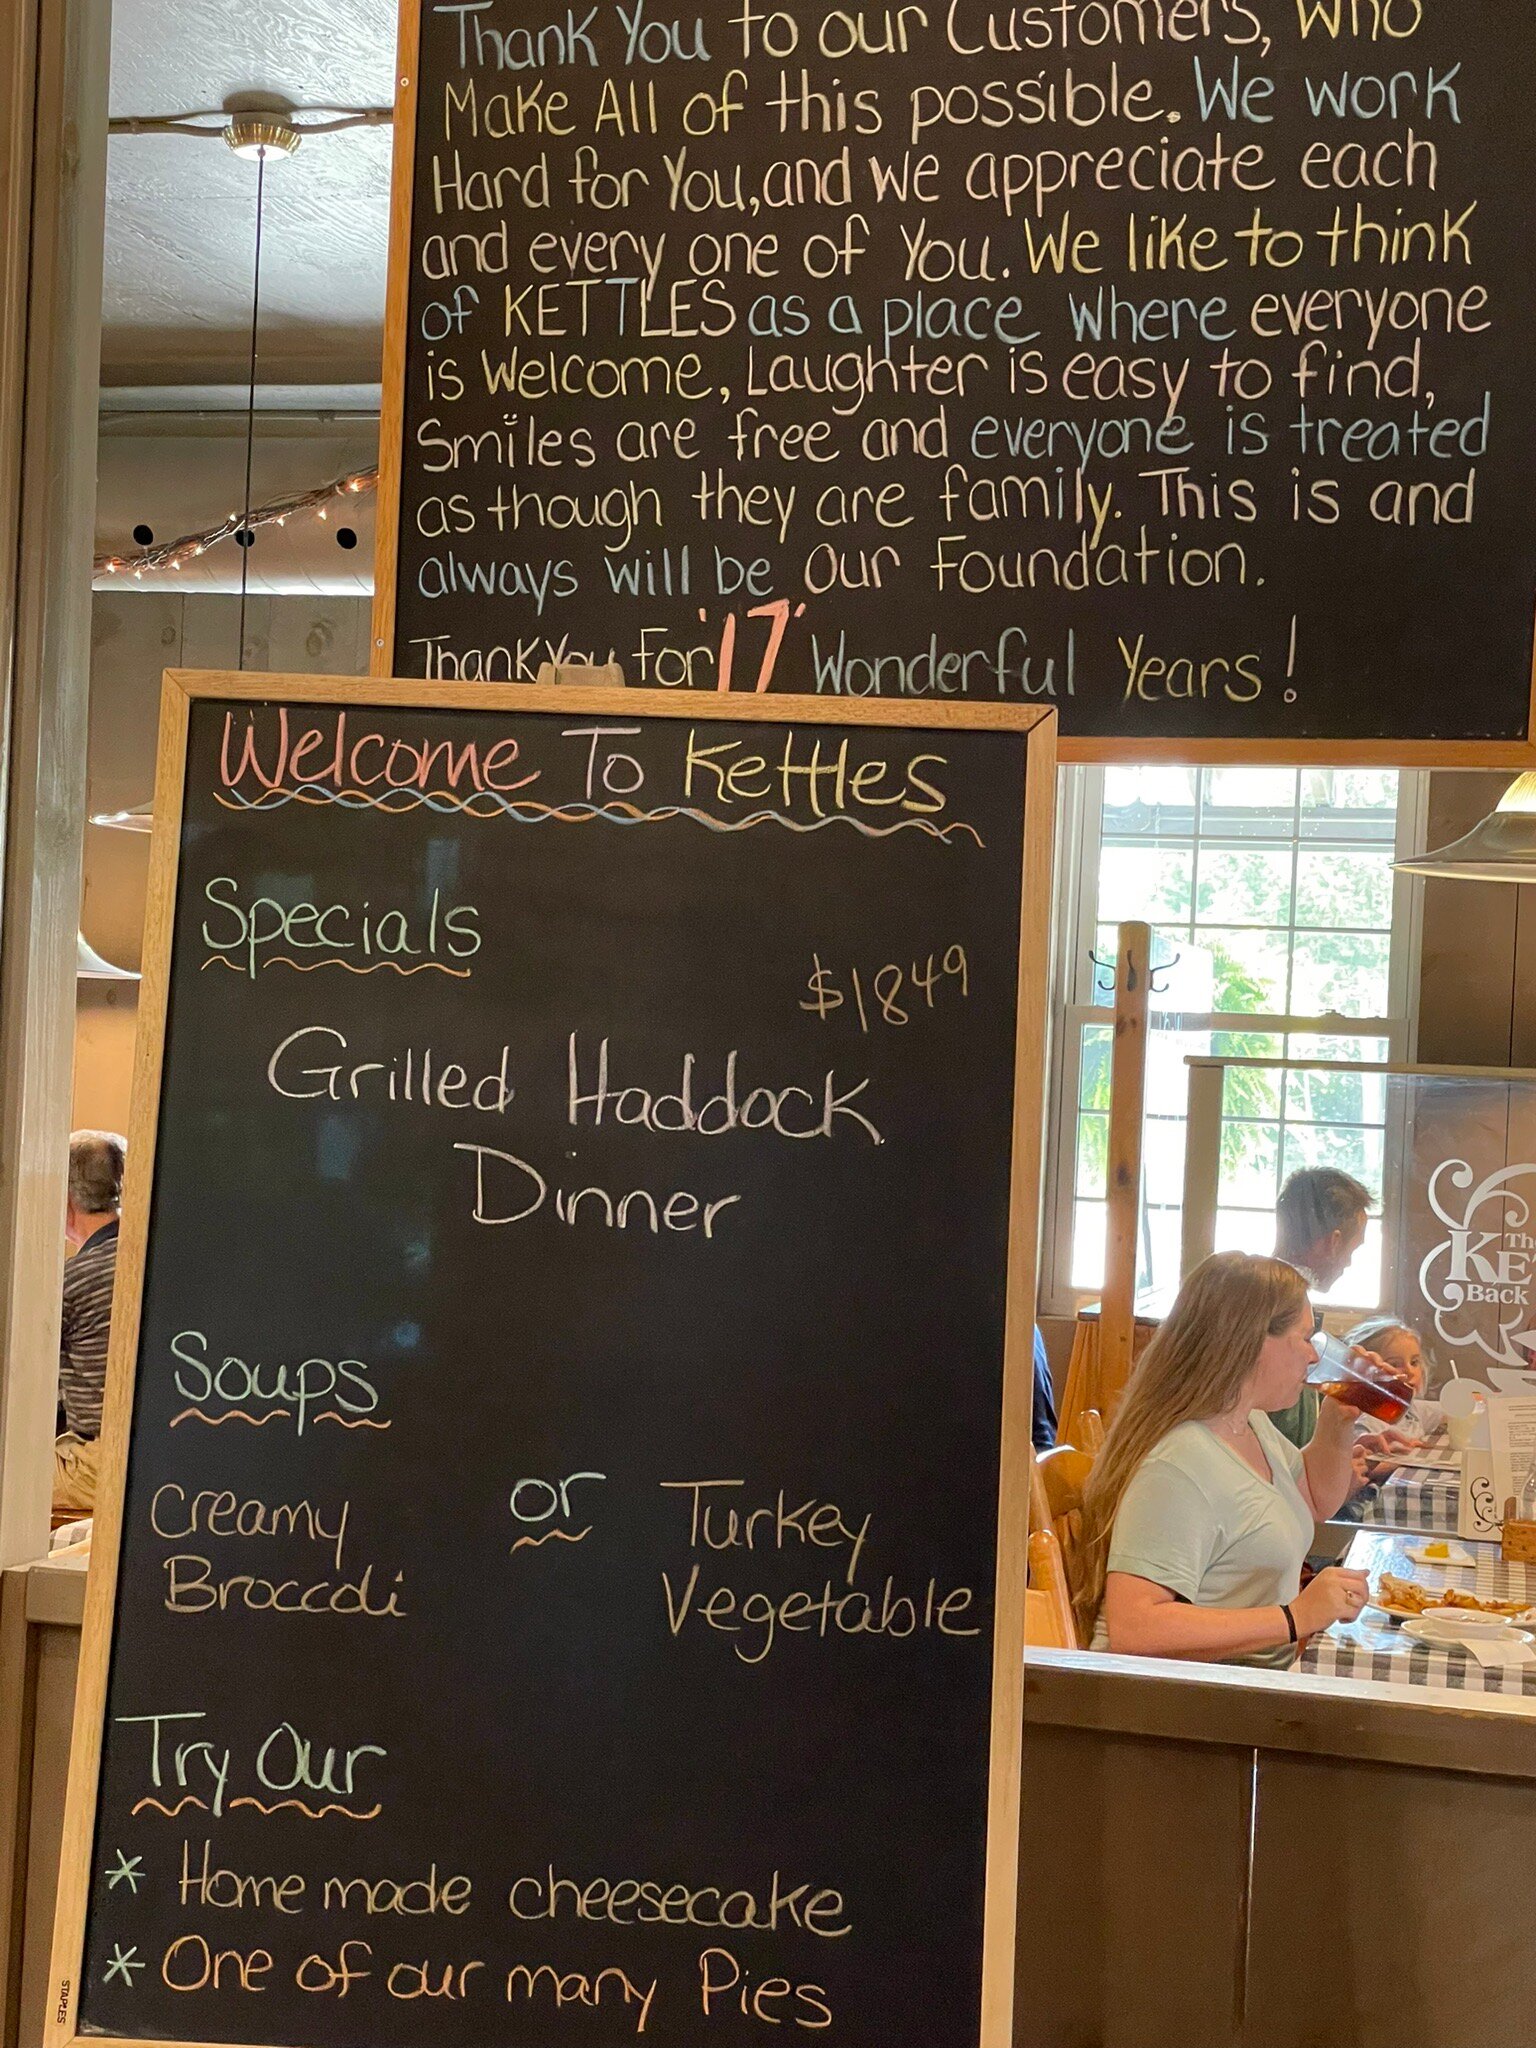 Thank You to our Customers, who
Make All of this possible. We work
Hard for You, and we appreciate each
and every one of You. We like to think
of KETTLES as a place where everyone
is Welcome, Laughter is easy to find,
Smiles are free and everyone is treated
as though they are family. This is and
always will be our Foundation.
Thank You For '17' Wonderful Years!
Welcome To Kettles
Specials
$18.49
Grilled Haddock
Dinner
Soups
Creamy or Turkey
Broccoli Vegetable
Try Our
* Home made cheesecake
* One of our many Pies
STAPLES
Back